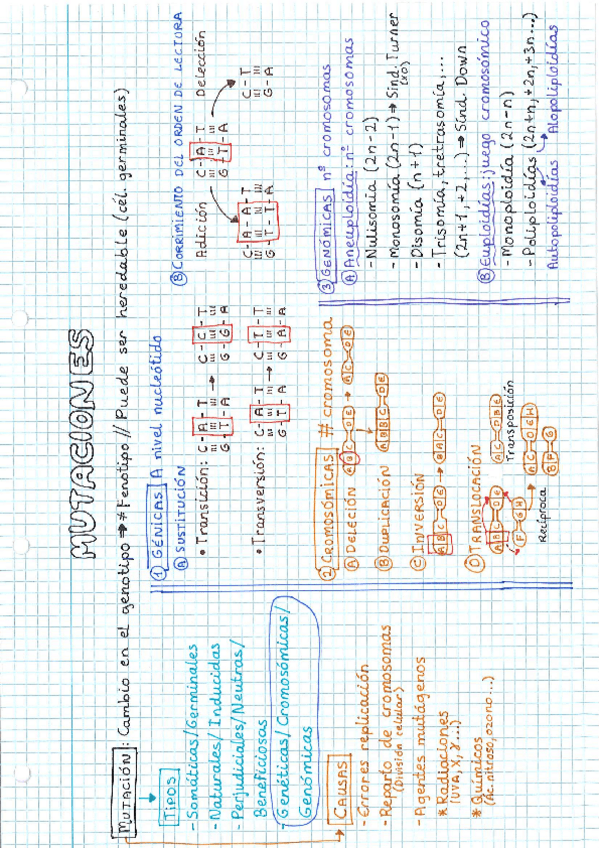 MUTACIONES
MUTACIÓN: Cambio en el genotipo → ≠ Fenotipo // Puede ser heredable (cél. germinales)
TIPOS
- Somáticas/Germinales
- Naturales/Inducidas
- Perjudiciales/Neutras/
Beneficiosas
- Genéticas/Cromosómicas/
Genómicas
CAUSAS
- Errores replicación
- Reparto de cromosomas
(División celular)
- Agentes mutágenos
* Radiaciones
(UVA, X, γ...)
* Químicos
(Ác. nitroso, ozono...)
① GÉNICAS A nivel nucleótido
Ⓐ SUSTITUCIÓN
• Transición: C-A-T → C-C-T
G-T-A G-G-A
• Transversión: C-A-T → C-T-T
G-T-A G-A-A
Ⓑ CORRIMIENTO DEL ORDEN DE LECTORA
Adición C-A-T Delección
G-T-A
C-A-A-T C-T
G-T-T-A G-A
② CROMOSÓMICAS # cromosoma
Ⓐ DELECIÓN ABC-DE → AC-DE
Ⓑ DUPLICACIÓN ABBC-D
Ⓒ INVERSIÓN
ABC-DE → BAC-DE
Ⓓ TRANSLOCACIÓN
ABC-DE
F-GH
Transposición
AC-DEH
BF-G
Recíproca
③ GENÓMICAS nº cromosomas
Ⓐ Aneuploidía: nº cromosomas
- Nulisomía (2n-2)
- Monosomía (2n-1) → Sínd. Turner
(X0)
- Disomía (n+1)
- Trisomía, tretrasomía,...
(2n+1,+2,...) → Sínd. Down
Ⓑ Euploidías: juego cromosómico
- Monoploidía (2n-n)
- Poliploidías (2n+n,+2n,+3n...)
Autopoliploidías Alopoliploidías